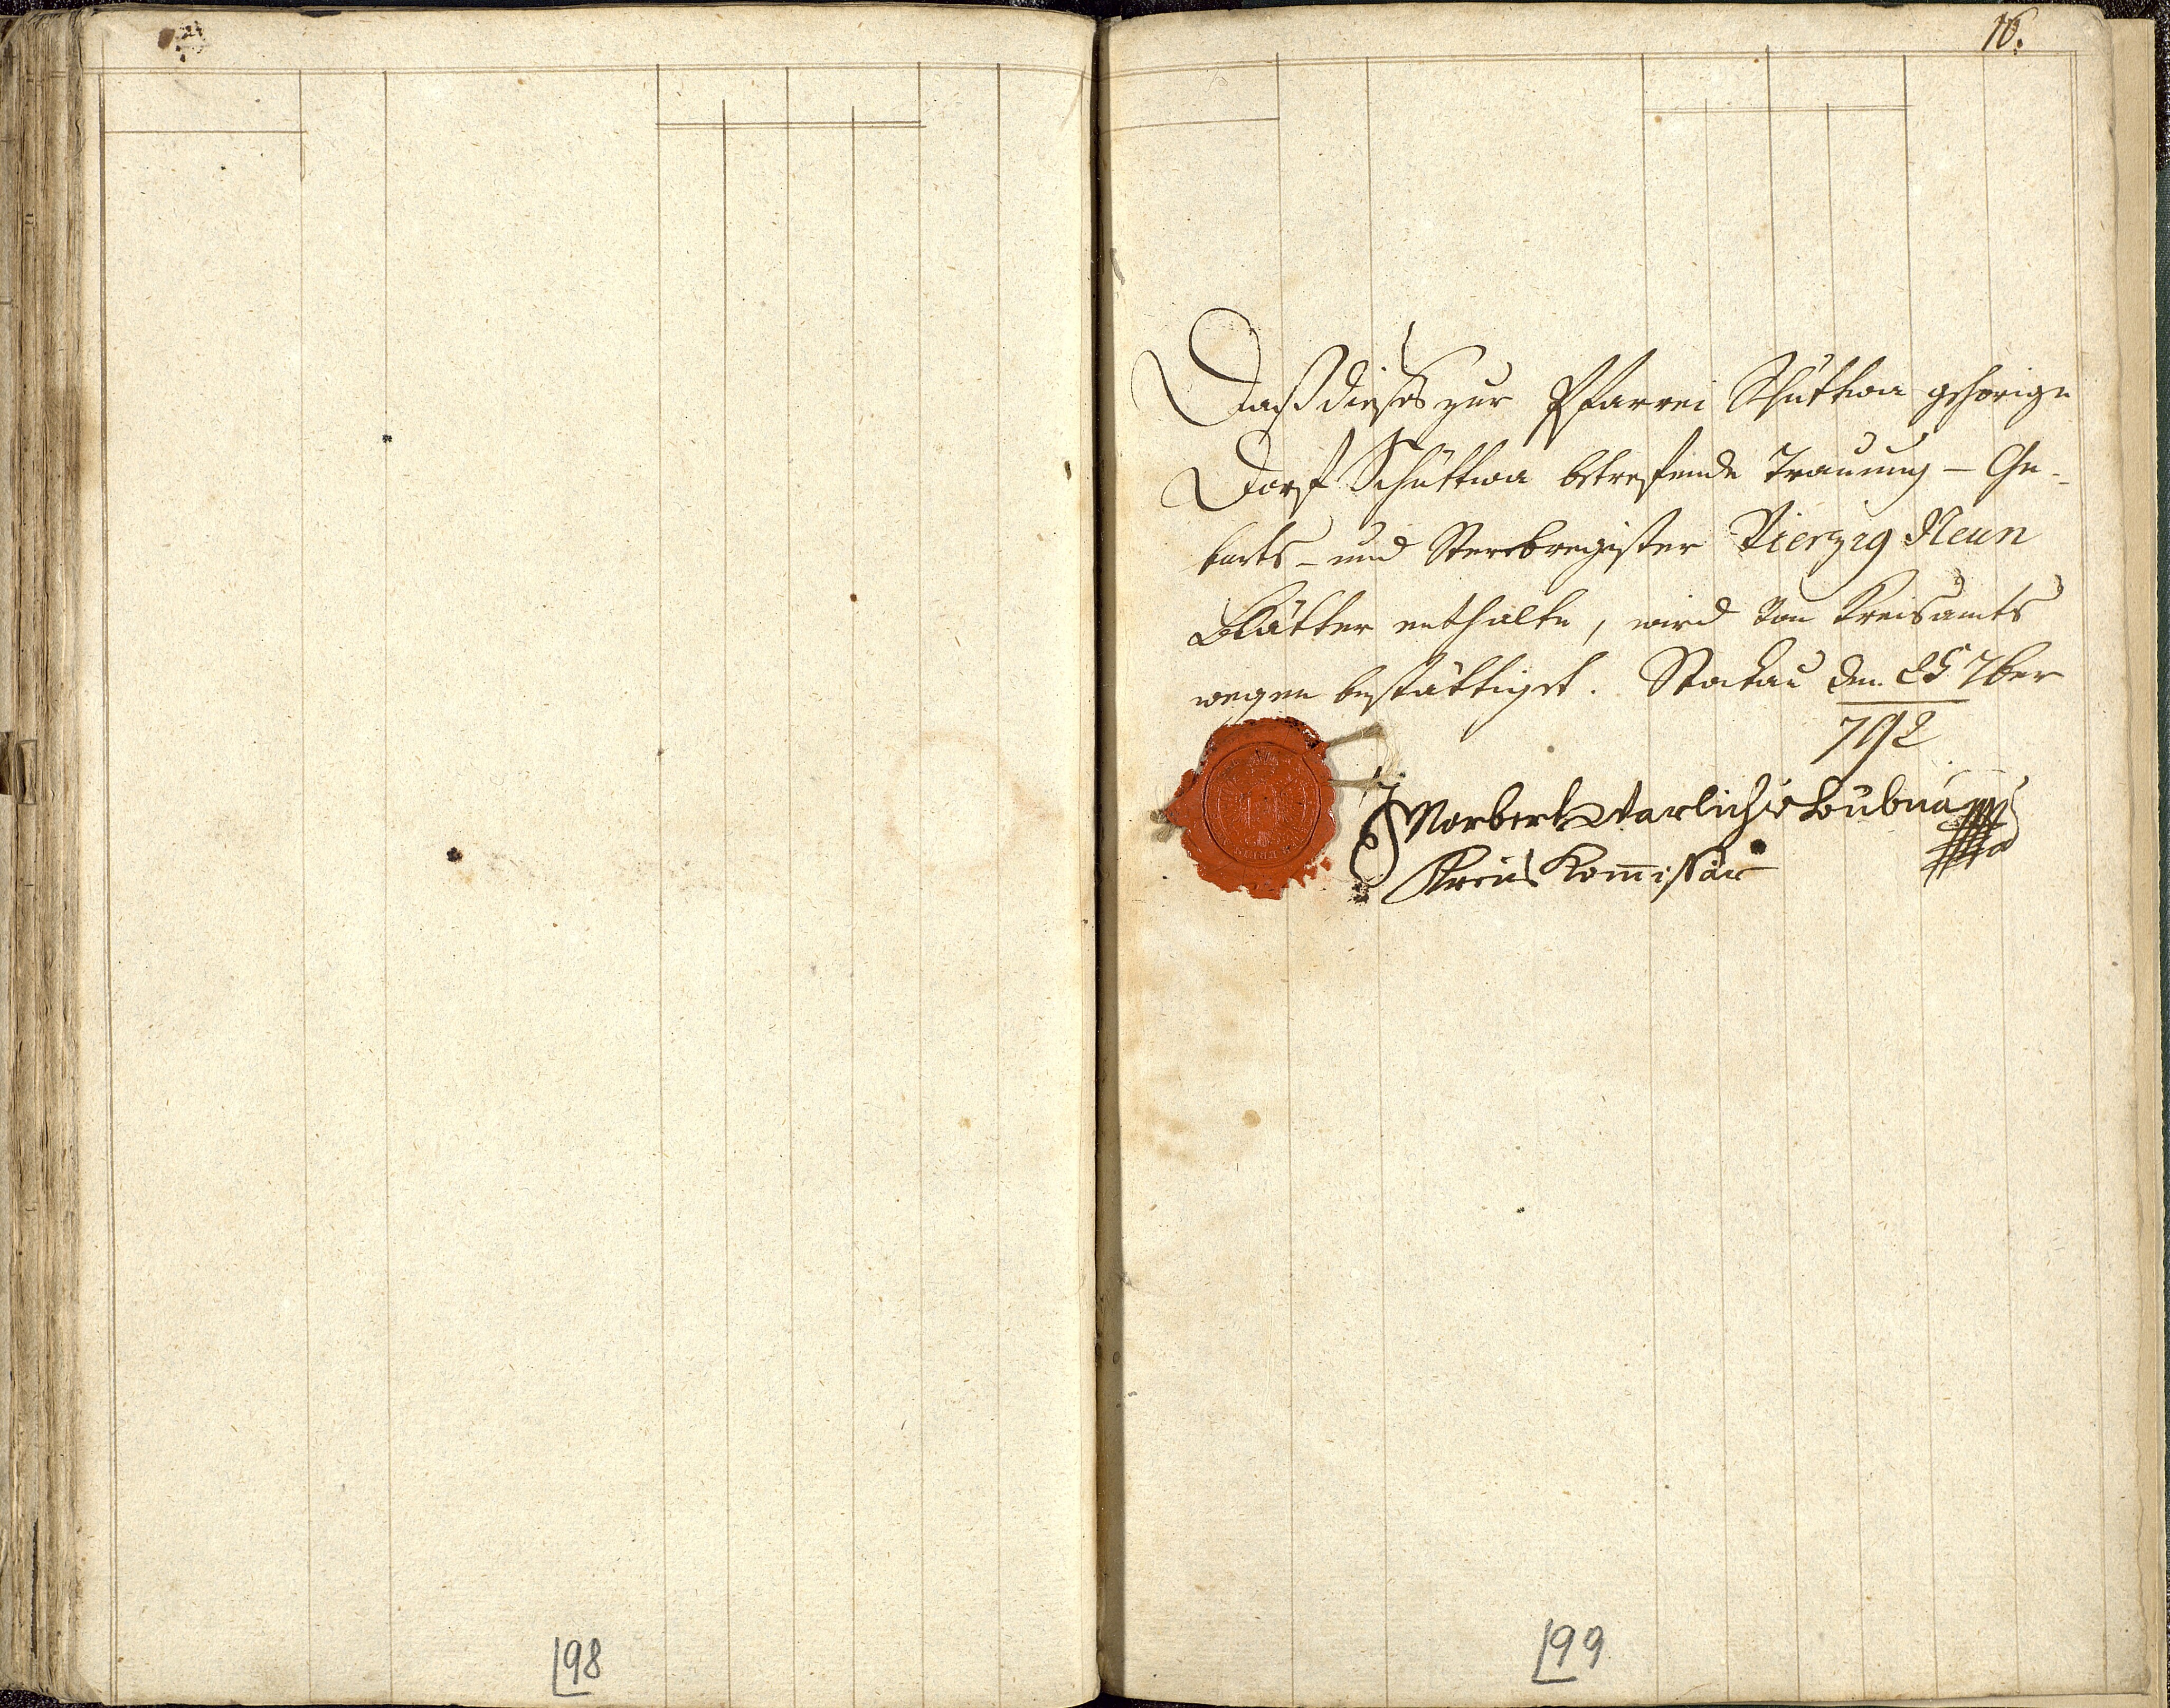 16.
Daß dieses zur Pfarrei Schüttwa gehörige
Dorf Schüttwa betrefende Trauung- Ge-
burts- und Sterbregister Vierzig Neun
Blätter enthalte, wird von Kreisamts
wegen bestättiget. den 7ber
792
Norbert
Kreis Kom̅issär
98
99